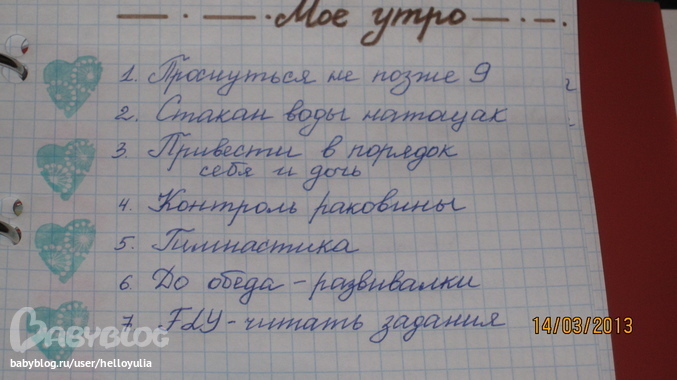 Мое утро
1. Проснуться не позже 9
2. Стакан воды натощак
3. Привести в порядок
себя и дочь
4. Контроль раковины
5. Гимнастика
6. До обеда - развивалки
7. FLY - читать задания
14/03/2013
BABYBLOG
babyblog.ru/user/helloyulia